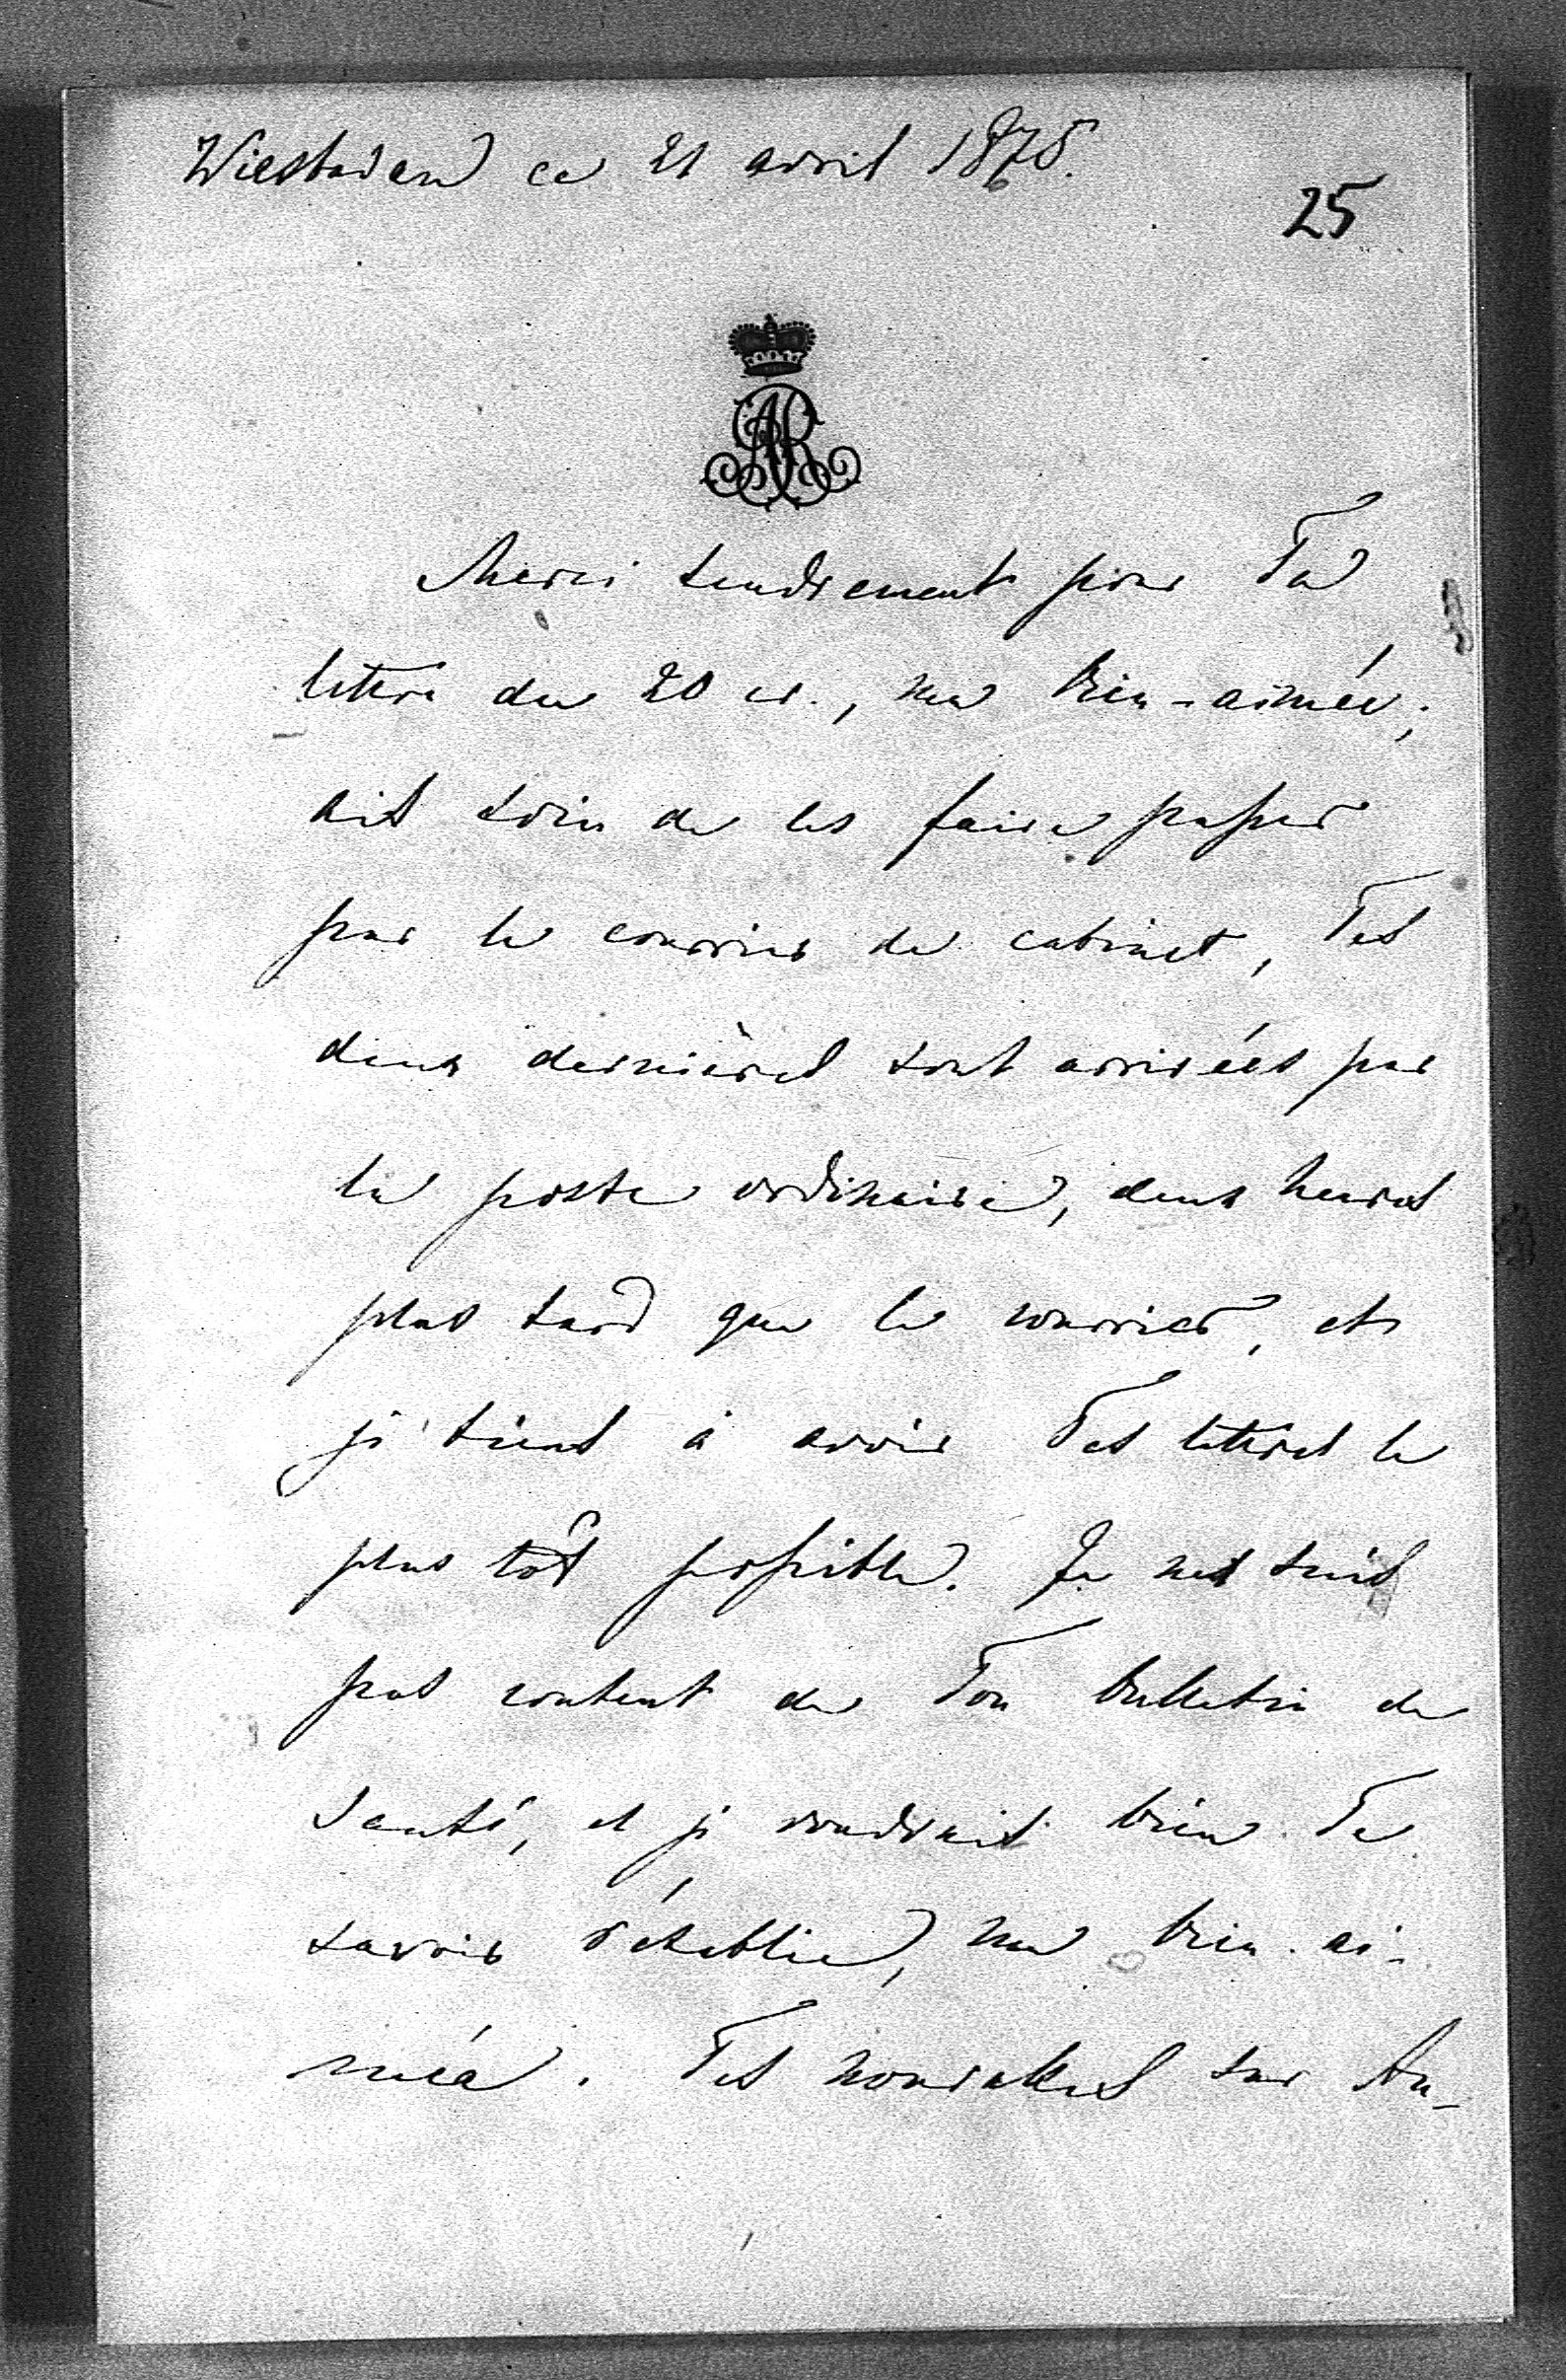 Wiesbaden ce 21 avril 1875.
25
AR
Merci tendrement pour Ta
lettre du 20 cr., ma bien-aimée;
ais soin de les faire passer
par le courrier de cabinet, Tes
deux dernières sont arrivées par
la poste ordinaire, deux heures
plus tard que le courrier, et
je tiens à avoir Tes lettres le
plus tôt possible. Je ne suis
pas content de Ton bulletin de
santé, et je voudrais bien Te
savoir rétablie, ma bien-ai-
mée. Tes nouvelles sur An-